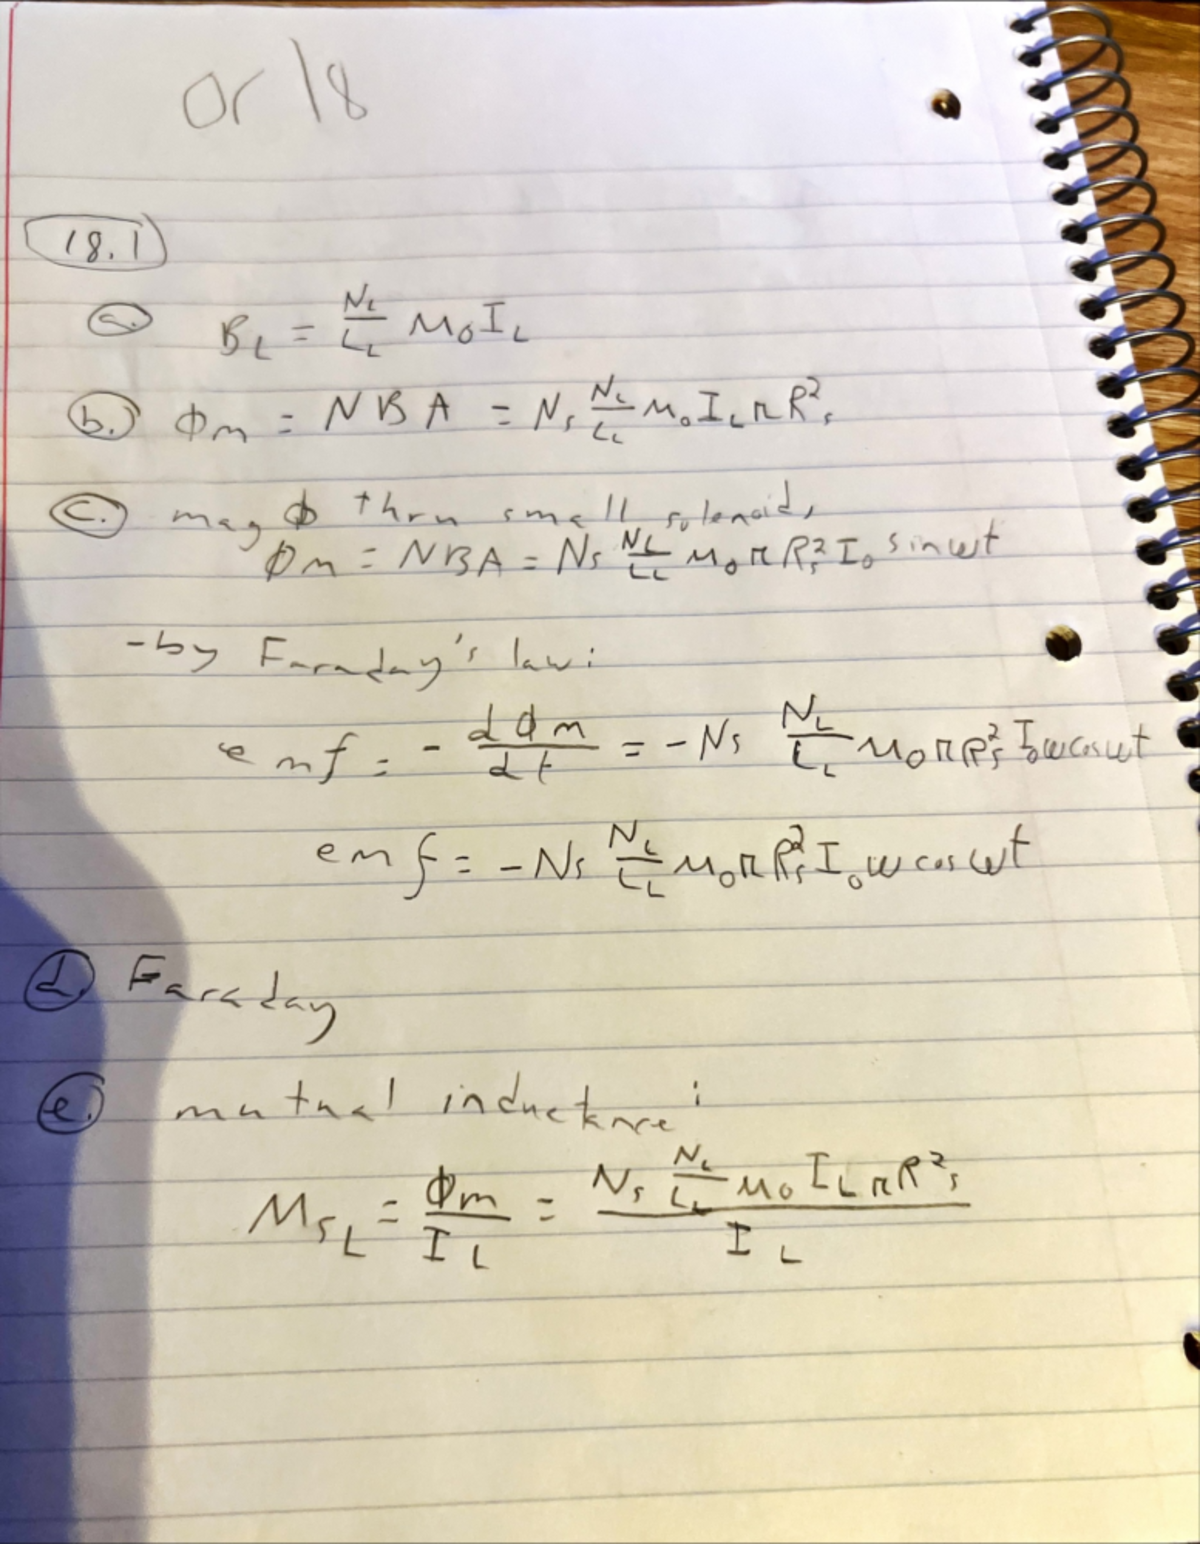 or 18
18.1
a. B_L = N_L/L_L μ₀ I_L
b.) Φm = NBA = N_s N_L/L_L μ₀ I_L π R²_s
c.) mag Φ thru small solenoid,
Φm = NBA = N_s N_L/L_L μ₀ π R_s² I₀ sin ωt
- by Faraday's law:
emf = - dΦm/dt = - N_s N_L/L_L μ₀ π R_s² I₀ ω cos ωt
emf = - N_s N_L/L_L μ₀ π R_s² I₀ ω cos ωt
d. Faraday
e.) mutual inductance:
M_SL = Φm/I_L = N_s N_L/L_L μ₀ I_L π R²_s / I_L